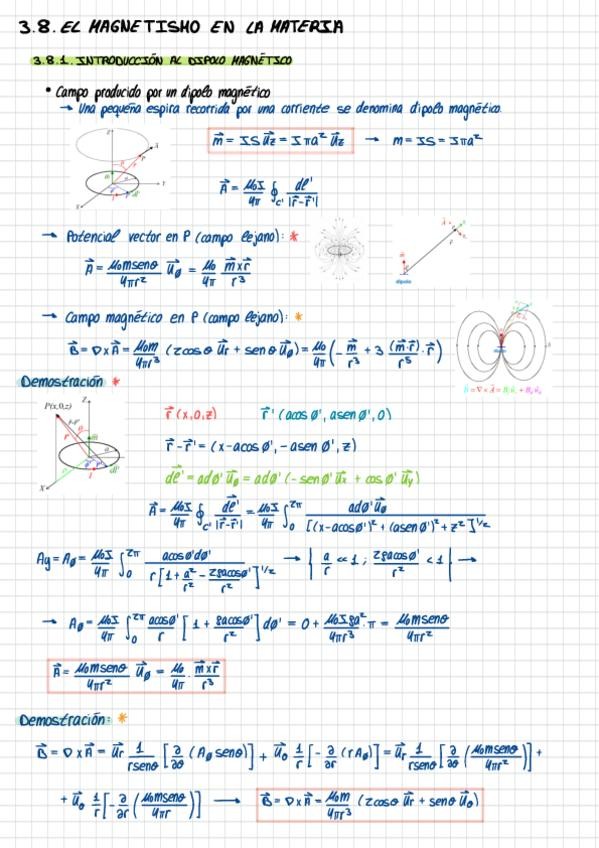 3.8. EL MAGNETISMO EN LA MATERIA
3.8.1. INTRODUCCIÓN AL DIPOLO MAGNÉTICO
• Campo producido por un dipolo magnético
→ Una pequeña espira recorrida por una corriente se denomina dipolo magnético.
m⃗ = IS u⃗z = Iπa² u⃗z → m = IS = Iπa²
A⃗ = μ₀I/4π ∮c' dl⃗'/|r⃗-r⃗'|
→ Potencial vector en P (campo lejano): *
A⃗ = μ₀msenθ/4πr² u⃗ø = μ₀/4π m⃗xr⃗/r³
dipolo
→ Campo magnético en P (campo lejano): *
B⃗ = ∇xA⃗ = μ₀m/4πr³ (2cosθ u⃗r + senθ u⃗ø) = μ₀/4π (-m⃗/r³ + 3 (m⃗·r⃗)/r⁵ · r⃗)
Demostración *
P(x,0,z)
r⃗ (x,0,z) r⃗' (acosø', asenø', 0)
r⃗-r⃗' = (x-acosø', -asenø', z)
dl⃗' = adø' u⃗ø = adø' (-senø' u⃗x + cosø' u⃗y)
A⃗ = μ₀I/4π ∮c' dl⃗'/|r⃗-r⃗'| = μ₀I/4π ∫₀^2π adø' u⃗ø/[(x-acosø')² + (asenø')² + z²]^1/2
Ay = Aø = μ₀I/4π ∫₀^2π acosø'dø'/r[1 + a²/r² - 2ρacosø'/r²]^1/2 → { a/r ≪ 1 ; 2ρacosø'/r² < 1 } →
→ Aø = μ₀I/4π ∫₀^2π acosø'/r [1 + ρacosø'/r²] dø' = 0 + μ₀Iρa²/4πr³ · π = μ₀msenθ/4πr²
A⃗ = μ₀msenθ/4πr² u⃗ø = μ₀/4π · m⃗xr⃗/r³
Demostración: *
B⃗ = ∇xA⃗ = u⃗r 1/rsenθ [∂/∂θ (Aøsenθ)] + u⃗θ 1/r [-∂/∂r (rAø)] = u⃗r 1/rsenθ [∂/∂θ (μ₀msenθ/4πr²)] +
+ u⃗θ 1/r [-∂/∂r (μ₀msenθ/4πr)] → B⃗ = ∇xA⃗ = μ₀m/4πr³ (2cosθ u⃗r + senθ u⃗θ)